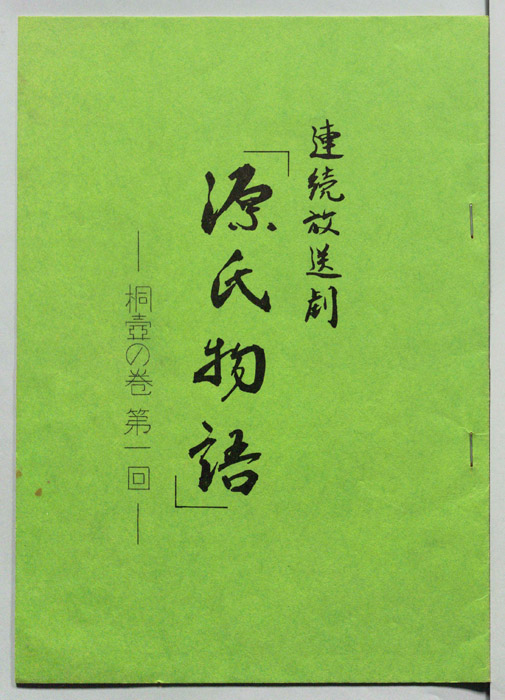 連続放送劇
「源氏物語」
―桐壺の巻 第一回―